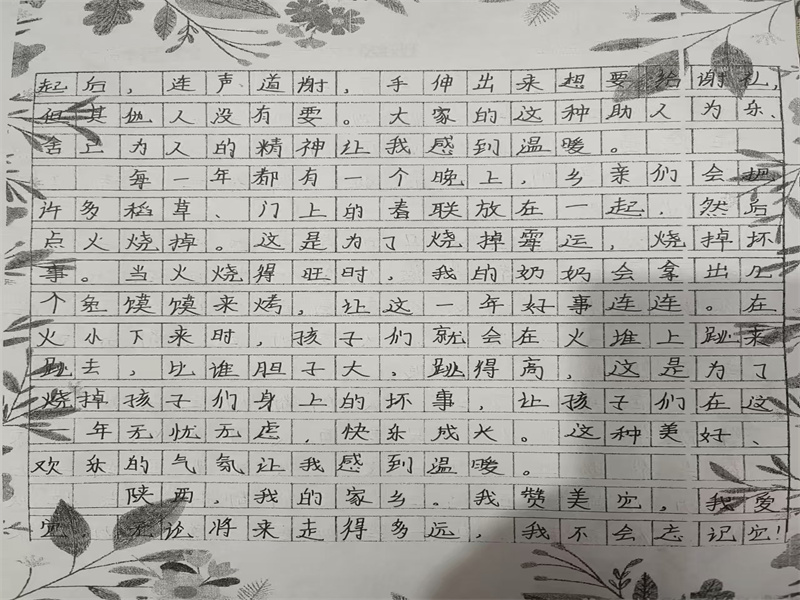 起后，连声道谢，手伸出来想要给谢礼，
但其他人没有要。大家的这种助人为乐、
舍己为人的精神让我感到温暖。
每一年都有一个晚上，乡亲们会把
许多稻草、门上的春联放在一起，然后
点火烧掉。这是为了烧掉霉运，烧掉坏
事。当火烧得旺时，我的奶奶会拿出几
个鱼馍馍来烤，让这一年好事连连。在
火小下来时，孩子们就会在火堆上跳来
跳去，比谁胆子大，跳得高，这是为了
烧掉孩子们身上的坏事，让孩子们在这
一年无忧无虑，快乐成长。这种美好、
欢乐的气氛让我感到温暖。
陕西，我的家乡。我赞美它，我爱
它，无论将来走得多远，我不会忘记它！